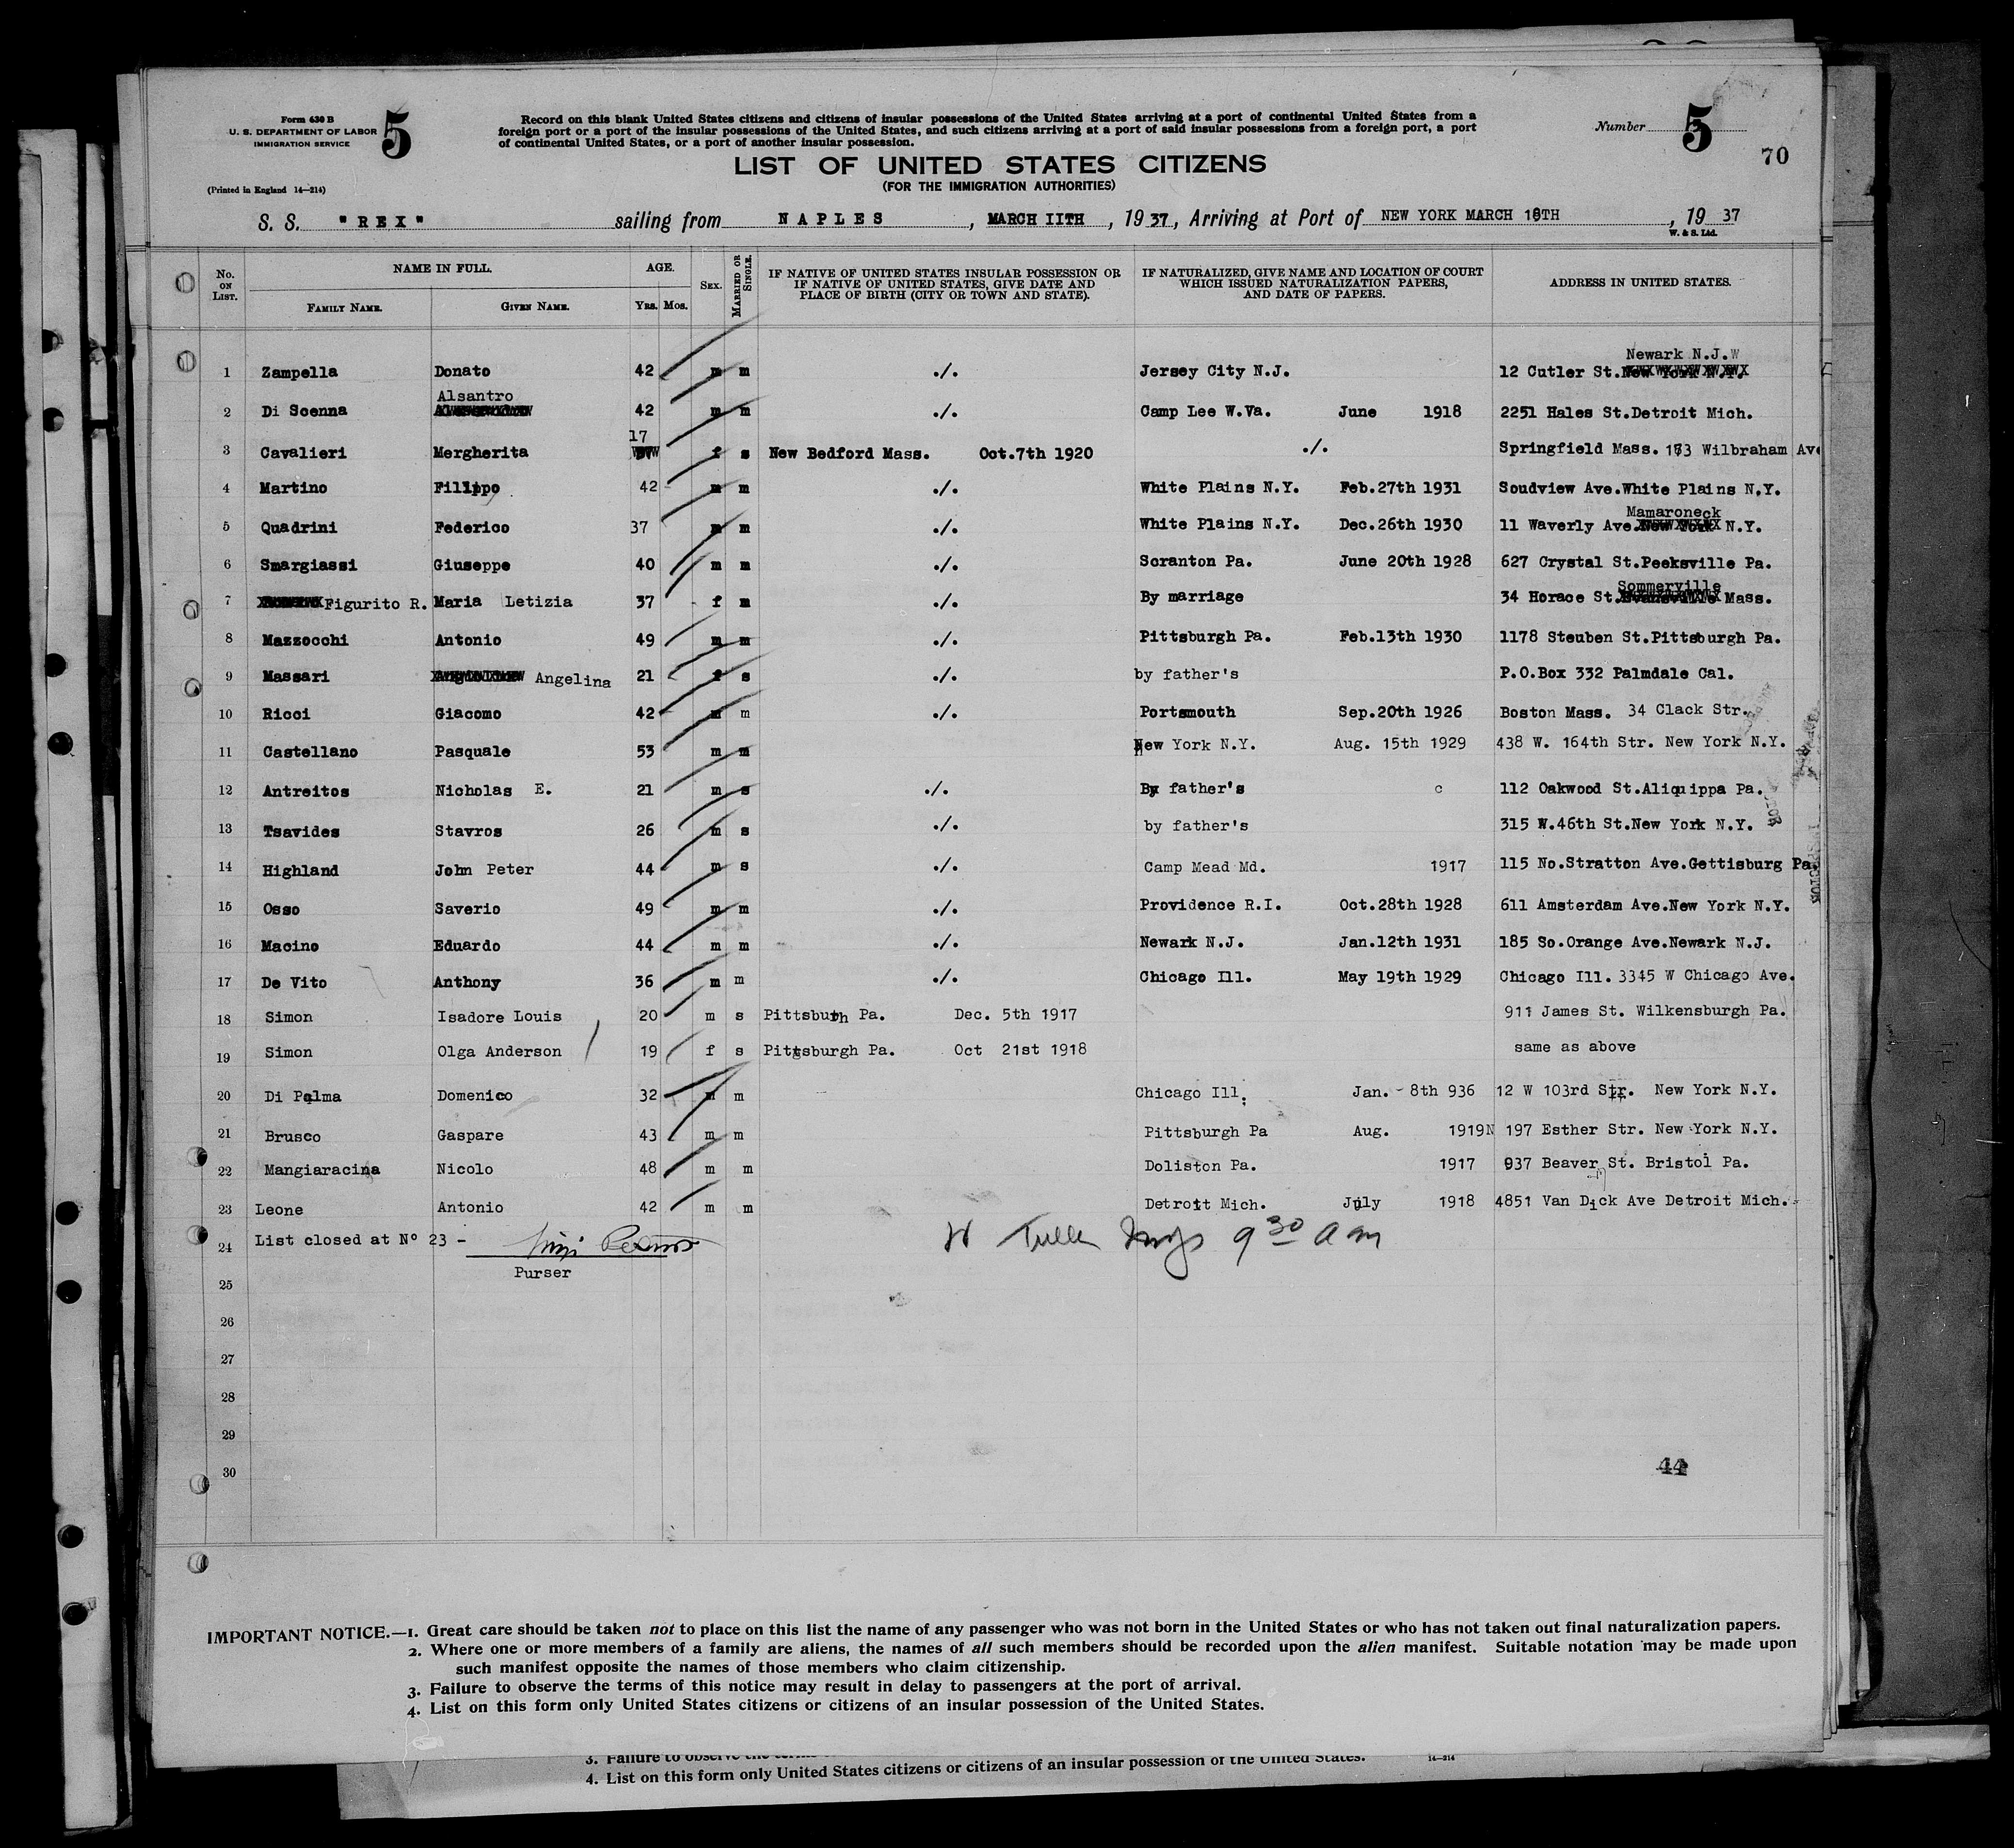 Form 630 B
U. S. DEPARTMENT OF LABOR
IMMIGRATION SERVICE
5
(Printed in England 14—214)
Record on this blank United States citizens and citizens of insular possessions of the United States arriving at a port of continental United States from a
foreign port or a port of the insular possessions of the United States, and such citizens arriving at a port of said insular possessions from a foreign port, a port
of continental United States, or a port of another insular possession.
Number 5
70
LIST OF UNITED STATES CITIZENS
(FOR THE IMMIGRATION AUTHORITIES)
S. S. "REX" sailing from NAPLES, MARCH IITH, 1937, Arriving at Port of NEW YORK MARCH 18TH, 1937
W. & S. Ltd.
No. ON LIST. NAME IN FULL. FAMILY NAME. GIVEN NAME. AGE. YRS. MOS. SEX. MARRIED OR SINGLE. IF NATIVE OF UNITED STATES INSULAR POSSESSION OR IF NATIVE OF UNITED STATES, GIVE DATE AND PLACE OF BIRTH (CITY OR TOWN AND STATE). IF NATURALIZED, GIVE NAME AND LOCATION OF COURT WHICH ISSUED NATURALIZATION PAPERS, AND DATE OF PAPERS. ADDRESS IN UNITED STATES.
Newark N.J.
1 Zampella Donato 42 m m ./. Jersey City N.J. 12 Cutler St. New York N.Y.
Alsantro
2 Di Scenna 42 m m ./. Camp Lee W.Va. June 1918 2251 Hales St.Detroit Mich.
17
3 Cavalieri Mergherita f s New Bedford Mass. Oct.7th 1920 ./. Springfield Mass. 173 Wilbraham Ave
4 Martino Filippo 42 m m ./. White Plains N.Y. Feb.27th 1931 Soudview Ave.White Plains N.Y.
Mamaroneck
5 Quadrini Federico 37 m m ./. White Plains N.Y. Dec.26th 1930 11 Waverly Ave. New York N.Y.
6 Smargiassi Giuseppe 40 m m ./. Scranton Pa. June 20th 1928 627 Crystal St.Peeksville Pa.
Sommerville
7 Figurito R. Maria Letizia 37 f m ./. By marriage 34 Horace St. Evansville Mass.
8 Mazzocchi Antonio 49 m m ./. Pittsburgh Pa. Feb.13th 1930 1178 Steuben St.Pittsburgh Pa.
9 Massari Angelina 21 f s ./. by father's P.O.Box 332 Palmdale Cal.
10 Ricci Giacomo 42 m m ./. Portsmouth Sep.20th 1926 Boston Mass. 34 Clack Str.
11 Castellano Pasquale 53 m m New York N.Y. Aug. 15th 1929 438 W. 164th Str. New York N.Y.
12 Antreitos Nicholas E. 21 m s ./. By father's c 112 Oakwood St.Aliquippa Pa.
13 Tsavides Stavros 26 m s ./. by father's 315 W.46th St.New York N.Y.
14 Highland John Peter 44 m s ./. Camp Mead Md. 1917 115 No.Stratton Ave.Gettisburg Pa
15 Osso Saverio 49 m m ./. Providence R.I. Oct.28th 1928 611 Amsterdam Ave.New York N.Y.
16 Macino Eduardo 44 m m ./. Newark N.J. Jan.12th 1931 185 So.Orange Ave.Newark N.J.
17 De Vito Anthony 36 m m ./. Chicago Ill. May 19th 1929 Chicago Ill. 3345 W Chicago Ave.
18 Simon Isadore Louis 20 m s Pittsburh Pa. Dec. 5th 1917 911 James St. Wilkensburgh Pa.
19 Simon Olga Anderson 19 f s Pittsburgh Pa. Oct 21st 1918 same as above
20 Di Palma Domenico 32 m m Chicago Ill. Jan. 8th 936 12 W 103rd Str. New York N.Y.
21 Brusco Gaspare 43 m m Pittsburgh Pa Aug. 1919N 197 Esther Str. New York N.Y.
22 Mangiaracina Nicolo 48 m m Doliston Pa. 1917 937 Beaver St. Bristol Pa.
23 Leone Antonio 42 m m Detroit Mich. July 1918 4851 Van Dick Ave Detroit Mich.
24 List closed at Nº 23 - 9 30 a m
Purser
25
26
27
28
29
30
44
IMPORTANT NOTICE.—1. Great care should be taken not to place on this list the name of any passenger who was not born in the United States or who has not taken out final naturalization papers.
2. Where one or more members of a family are aliens, the names of all such members should be recorded upon the alien manifest. Suitable notation may be made upon
such manifest opposite the names of those members who claim citizenship.
3. Failure to observe the terms of this notice may result in delay to passengers at the port of arrival.
4. List on this form only United States citizens or citizens of an insular possession of the United States.
3. Failure to observe the terms
4. List on this form only United States citizens or citizens of an insular possession of the United States.
14—214